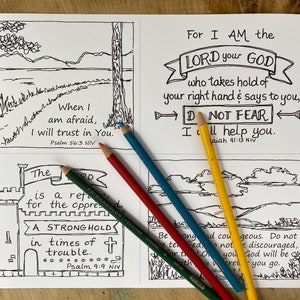 When I
am afraid,
I will trust in You.
Psalm 56:3 NIV
For I AM the
LORD your GOD
who takes hold of
your right hand & says to you,
DO NOT FEAR
I will help you.
Isaiah 41:13 NIV
The
is a refuge
for the oppressed,
A STRONGHOLD
in times of
trouble.
Psalm 9:9 NIV
Be strong and courageous. Do not
be terrified; do not be discouraged,
for the LORD your God will be
with you wherever you go.